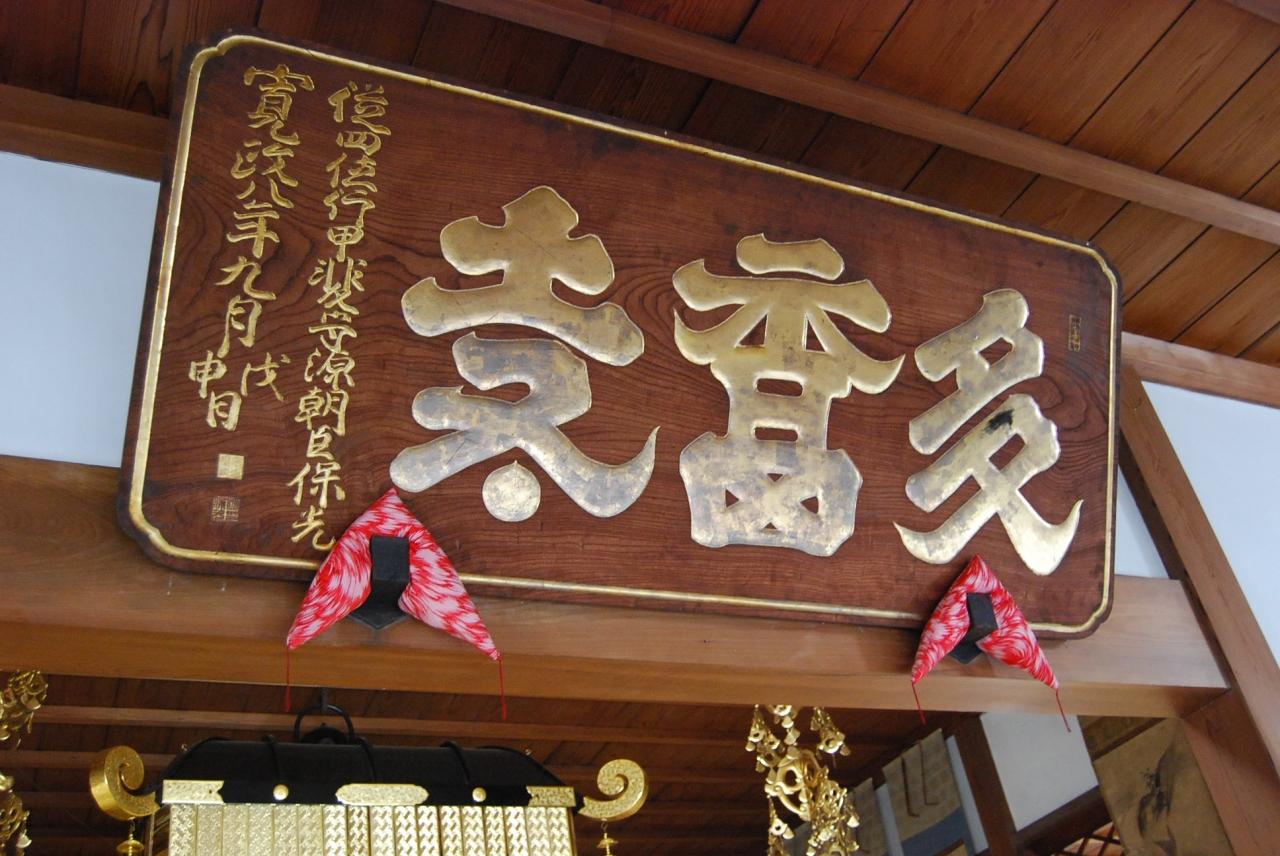 多
從四位行甲斐守源朝臣保光
寛政八年九月戊申日